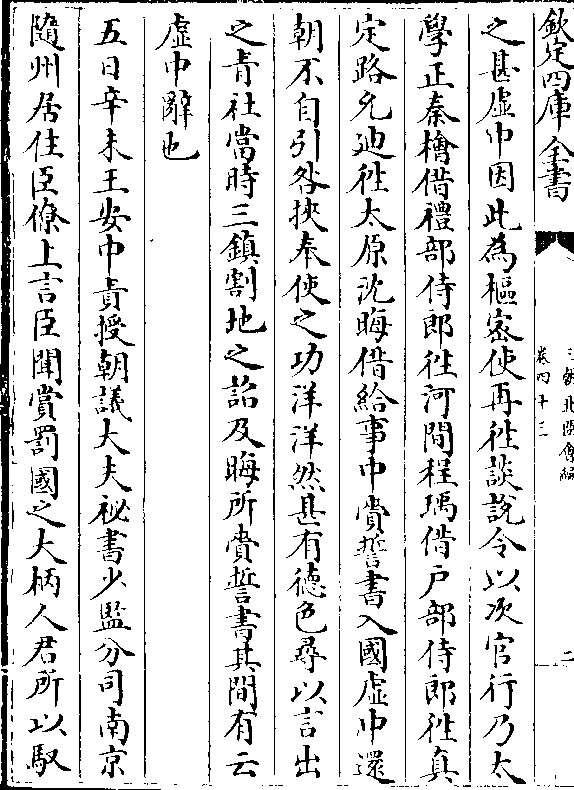 欽定四庫全書
三朝北盟會編
卷四十三
二
之甚虛中因此為樞密使再徃談説令以次官行乃太
學正秦檜借禮部侍郎徃河間程瑀借户部侍郎徃真
定路允廸徃太原沈晦借給事中賫誓書入國虛中還
朝不自引咎挾奉使之功洋洋然甚有德色尋以言出
之青社當時三鎮割地之詔及晦所賫誓書其間有云
虛中辭也
五日辛未王安中責授朝議大夫祕書少監分司南京
隨州居住臣僚上言臣聞賞罰國之大柄人君所以馭